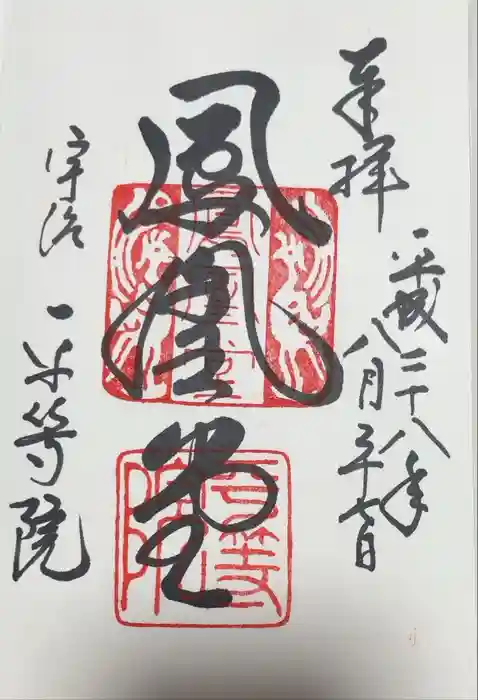 奉拝
平成二十八年
八月
鳳凰堂
宇治
平等院